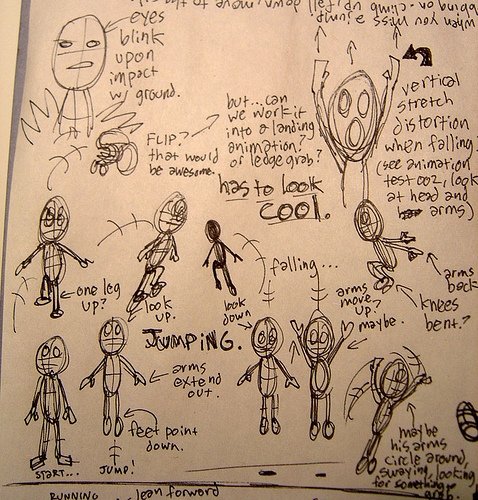 eyes
blink
upon
impact
w/ ground.
when you miss a jump,
FLIP?
that would
be awesome.
but...can
we work it
into a landing
animation?
or ledge grab?
has to look
COOL.
vertical
stretch
distortion
when falling?
(see animation
test 002, look
at head and
arms)
one leg
up?
look
up.
look
down
falling...
arms
move
up?
maybe.
arms
back
knees
bent?
JUMPING.
arms
extend
out.
feet point
down.
START...
JUMP!
maybe
his arms
circle around,
swaying, looking
for something
RUNNING ... lean forward